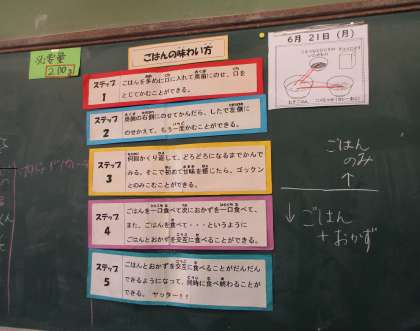 必要量
200g
ごはんの味わい方
ステップ
1
ごはんを多めに口に入れて奥歯にのせ、口を
とじてかむことができる。
ステップ
2
奥歯の右側にのせてかんだら、したで左側に
のせかえて、もう一度かむことができる。
ステップ
3
何回かくり返して、どろどろになるまでかんで
みる。そこで初めて甘味を感じたら、ゴックン
とのみこむことができる。
ステップ
4
ごはんを一口食べて次におかずを一口食べて、
また、ごはんを食べて・・・というように
ごはんとおかずを交互に食べることができる。
ステップ
5
ごはんとおかずを交互に食べることがだんだん
できるようになって、同時に食べ終わることが
できる。 ヤッター！！
6月 21日（月）
ごはん
のみ
↑
↓ ごはん
+ おかず